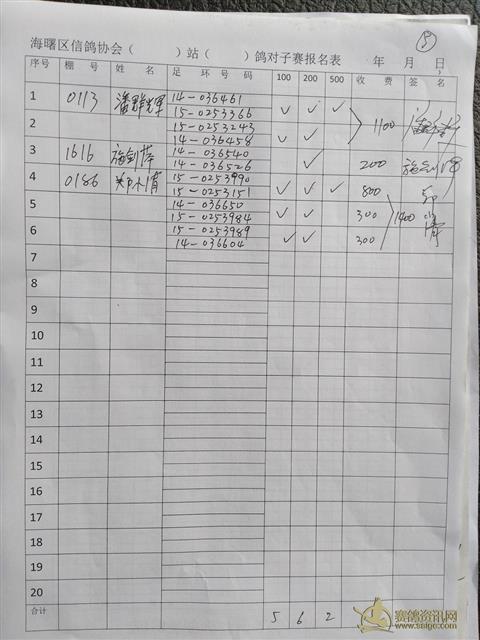 ⑤
海曙区信鸽协会（ ）站（ ）鸽对子赛报名表 年 月 日
序号 棚 号 姓 名 足 环 号 码 100 200 500 收 费 签 名
1 0113 14-036461 ✓ ✓ ✓ 1100
15-0253366
2 15-0253243 ✓ ✓
14-036458
3 1616 14-036540 ✓ 200
14-036526
4 0186 15-0253990 ✓ ✓ ✓ 800 1400
15-0253151
5 14-036650 ✓ ✓ 300
15-0253984
6 15-0253989 ✓ ✓ 300
14-036604
7
8
9
10
11
12
13
14
15
16
17
18
19
20
合计 5 6 2
赛鸽资讯网
www.saige.com